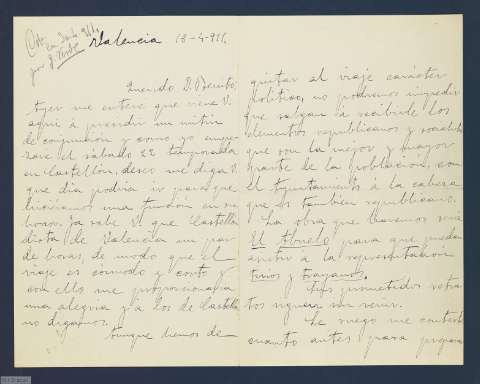 Valencia 18-4-911.
Querido D. Benito:
Ayer me enteré que viene V.
aquí á presidir un mitin
de conjunción y como yo empe-
zaré el sábado 22 temporada
en Castellón, deseo me diga V.
que día podría ir para que
hiciéramos una función en su
honor. Ya sabe V. que Castellón
dista de Valencia un par
de horas, de modo que el
viaje es cómodo y corto y
con ello me proporcionaría
una alegría y á los de Castellón
no digamos.
Aunque hemos de
quitar al viaje carácter
político, no podremos impedir
que salgan á recibirle los
elementos republicanos y socialistas
que son la mejor y mayor
parte de la población, con
el Ayuntamiento á la cabeza
que es también republicano.
La obra que haremos será
El Abuelo para que puedan
asistir á la representación
tirios y troyanos.
Sus prometidos retra-
tos siguen sin venir.
Le ruego me conteste
cuanto antes para preparar